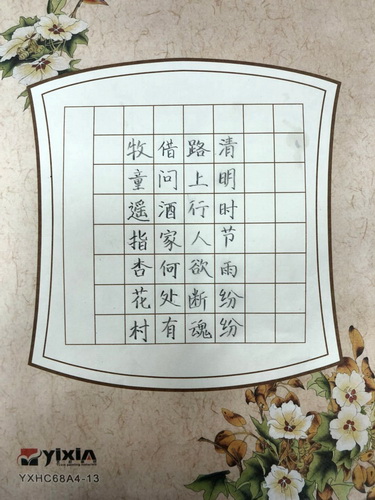 清明时节雨纷纷
路上行人欲断魂
借问酒家何处有
牧童遥指杏花村
yixin
YXHC68A4-13